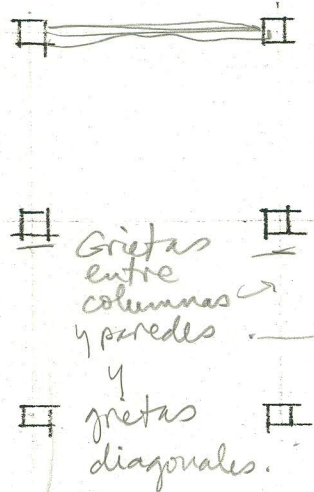 Grietas
entre
columnas
y paredes
y
grietas
diagonales.